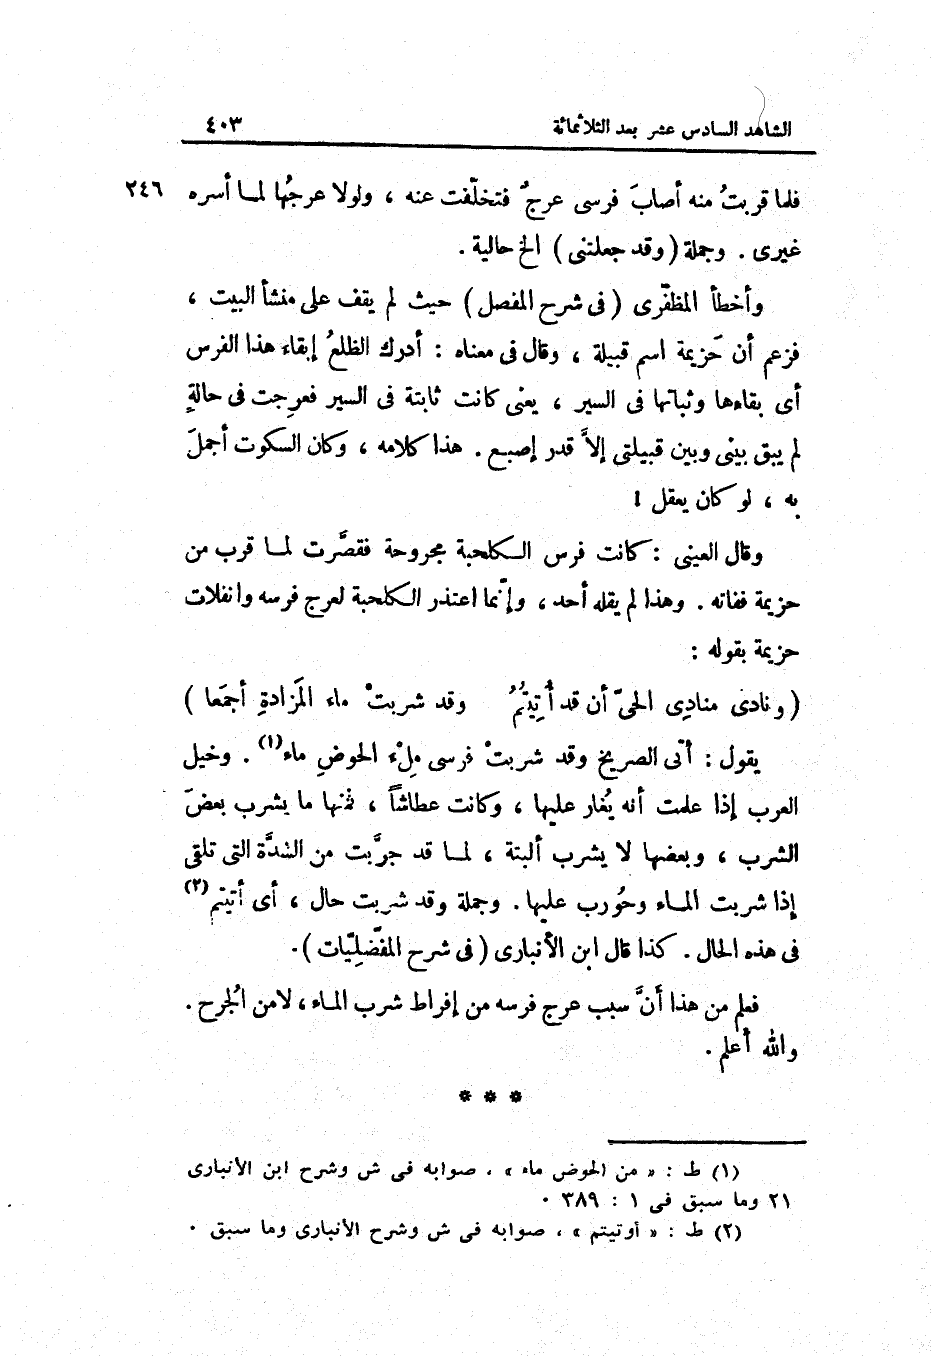 الشاهد السادس عشر بعد الثلاثمائة ٤٠٣
فلما قربتُ منه أصابَ فرسى عرجٌ فتخلّفت عنه ، ولولا عرجُها لما أسره ٢٤٦
غيرى . وجملة ( وقد جعلتنى ) الخ حالية .
وأخطأ المظفّرى ( فى شرح المفصل ) حيث لم يقف على منشأ البيت ،
فزعم أن حَزيمة اسم قبيلة ، وقال فى معناه : أدرك الظلعُ إبقاء هذا الفرس
أى بقاءها وثباتها فى السير ، يعنى كانت ثابتة فى السير فعرِجت فى حالةٍ
لم يبق بينى وبين قبيلتى إلاَّ قدر إصبع . هذا كلامه ، وكان السكوت أجملَ
به ، لو كان يعقل !
وقال العينى : كانت فرس الكلحبة مجروحة فقصَّرت لما قرب من
حزيمة ففاته . وهذا لم يقله أحد ، وإنّما اعتذر الكلحبة لعرج فرسه وانفلات
حزيمة بقوله :
( ونادى منادِى الحىّ أن قد أُتِيتُمُ وقد شربتْ ماء المَزادةِ أجمَعا )
يقول : أتى الصريخ وقد شربتْ فرسى مِلْء الحوضِ ماء(١) . وخيل
العرب إذا علمت أنه يُغار عليها ، وكانت عطاشاً ، فمنها ما يشرب بعضَ
الشرب ، وبعضها لا يشرب ألبتة ، لما قد جرَّبت من الشدَّة التى تلقى
إذا شربت الماء وحُورب عليها . وجملة وقد شربت حال ، أى أتيتم(٢)
فى هذه الحال . كذا قال ابن الأنبارى ( فى شرح المفّضلِيّات ) .
فعلم من هذا أنَّ سبب عرج فرسه من إفراط شرب الماء ، لا من الجُرح .
والله أعلم .
* * *
(١) ط : « من الحوض ماء » ، صوابه فى ش وشرح ابن الأنبارى
٢١ وما سبق فى ١ : ٣٨٩ .
(٢) ط : « أوتيتم » ، صوابه فى ش وشرح الأنبارى وما سبق .